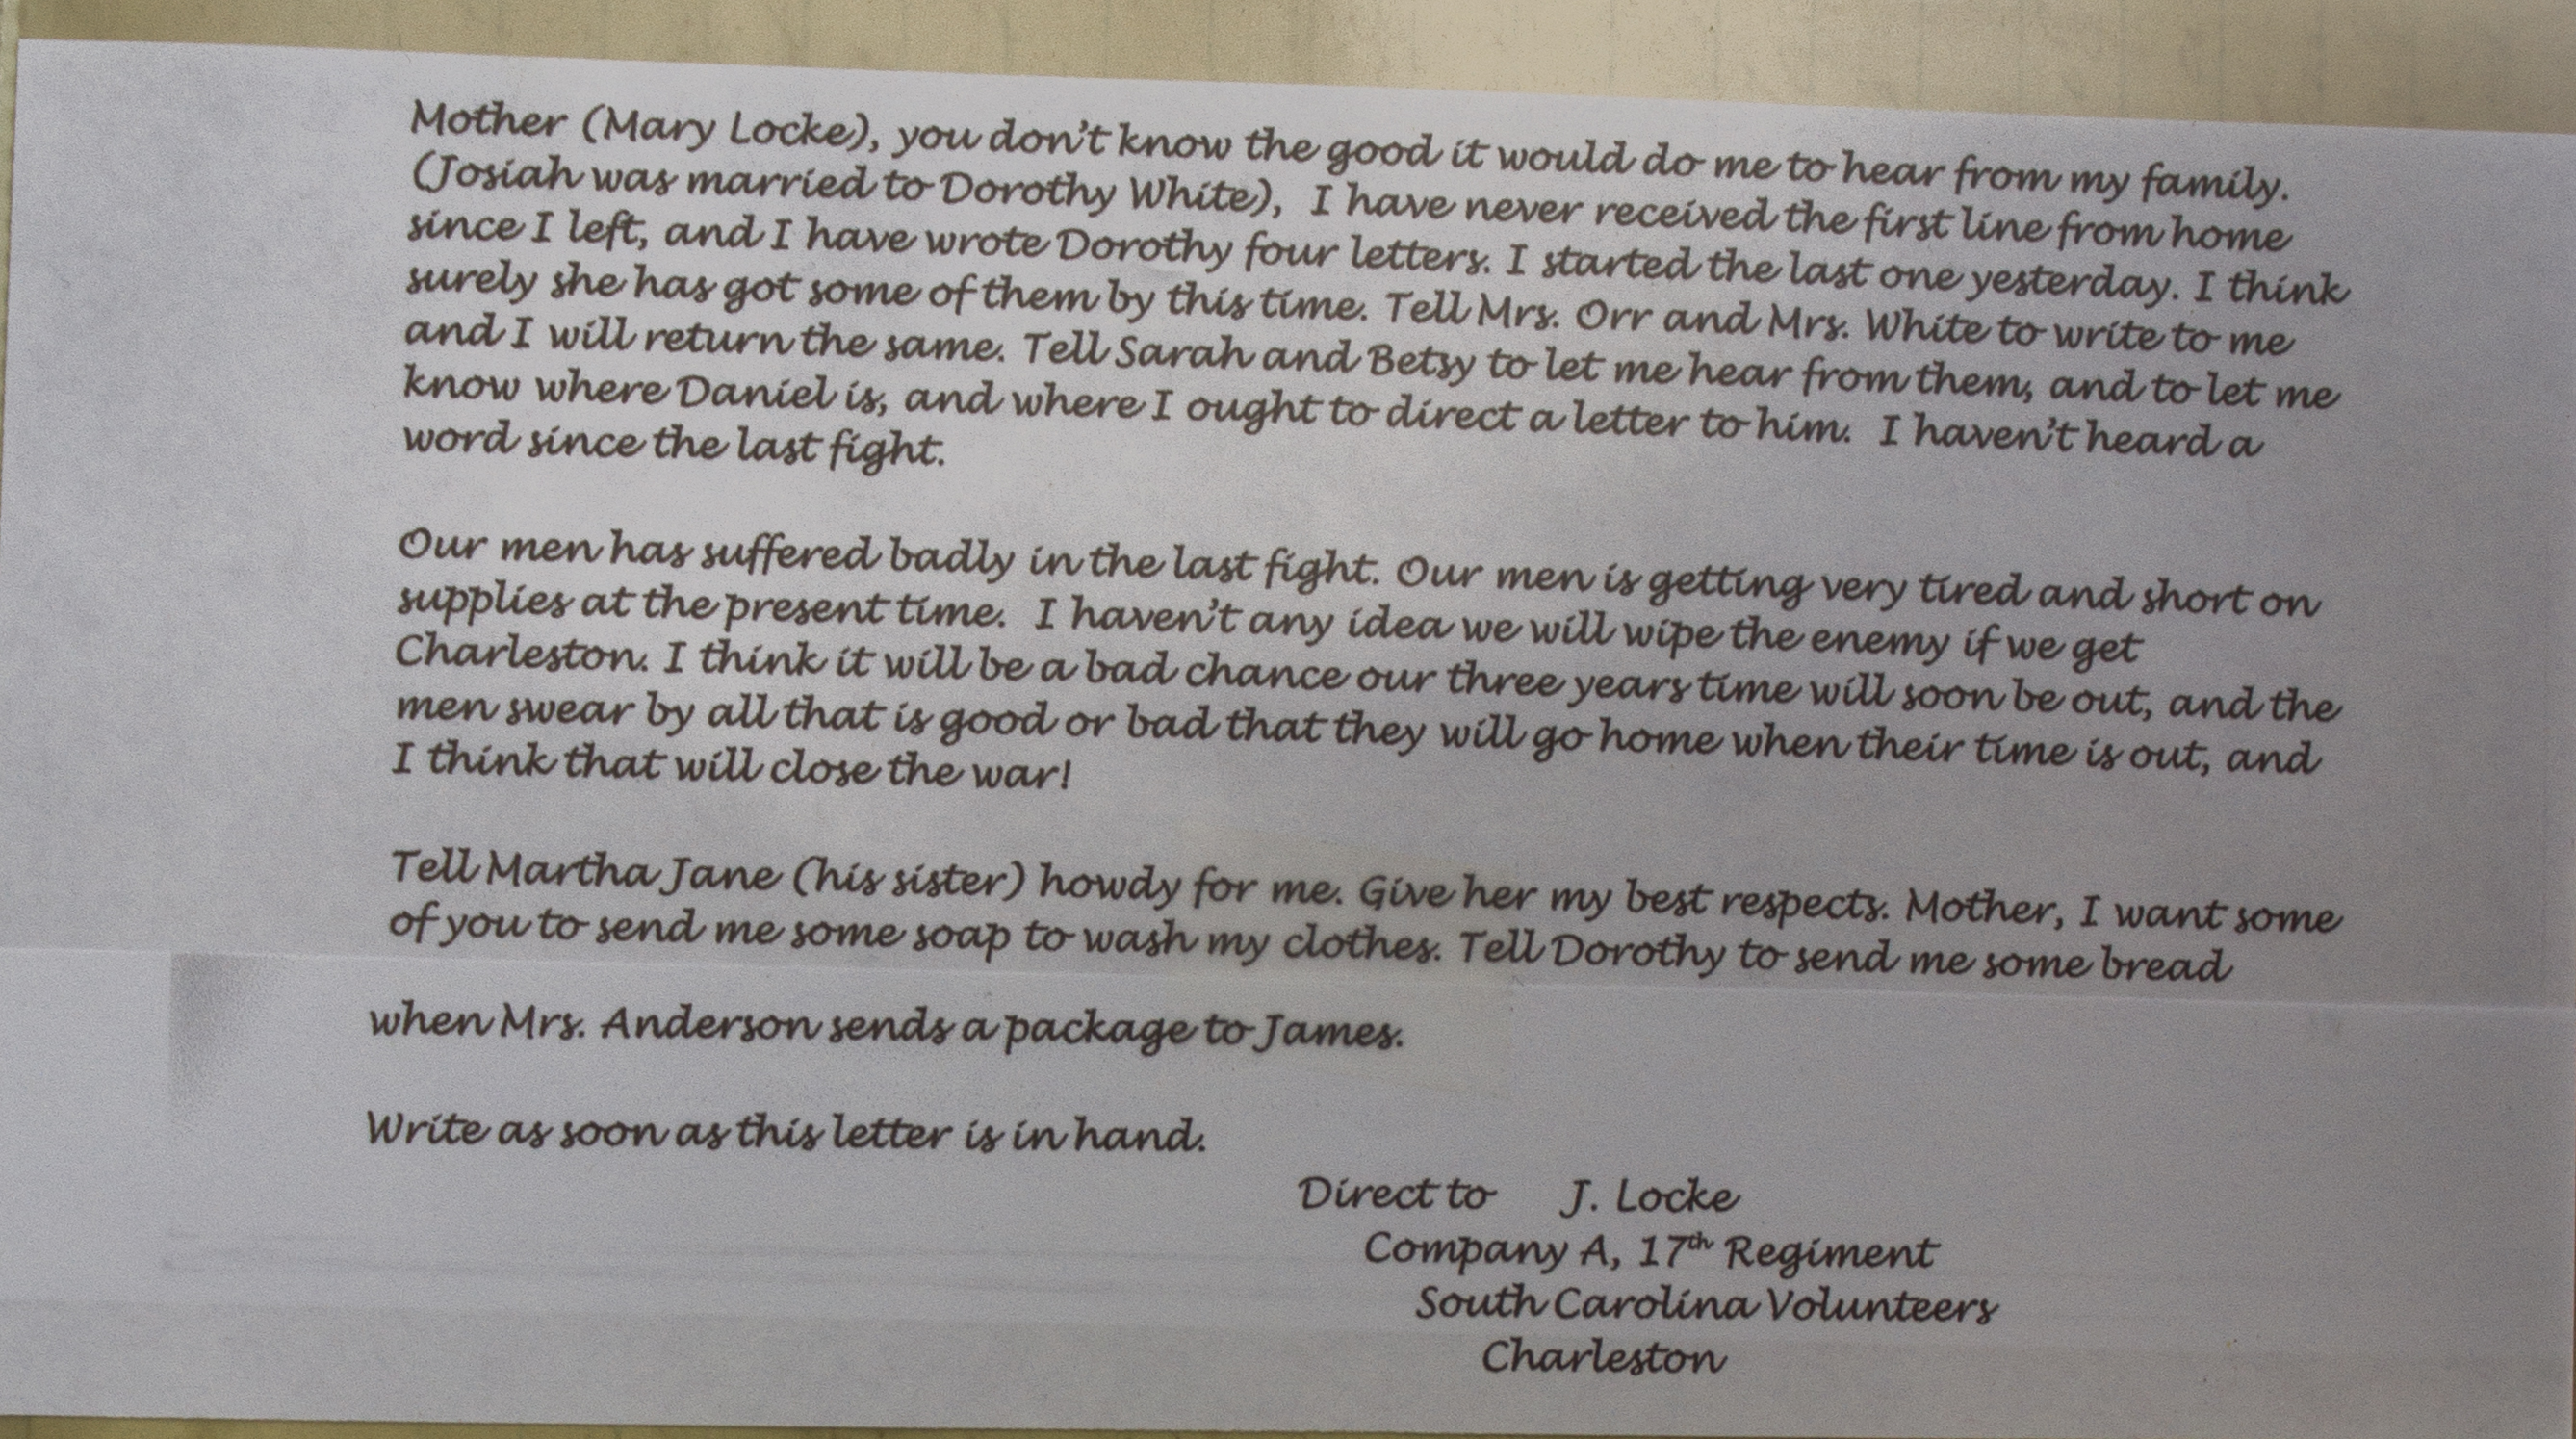 Mother (Mary Locke), you don't know the good it would do me to hear from my family.
(Josiah was married to Dorothy White), I have never received the first line from home
since I left, and I have wrote Dorothy four letters. I started the last one yesterday. I think
surely she has got some of them by this time. Tell Mrs. Orr and Mrs. White to write to me
and I will return the same. Tell Sarah and Betsy to let me hear from them, and to let me
know where Daniel is, and where I ought to direct a letter to him. I haven't heard a
word since the last fight.
Our men has suffered badly in the last fight. Our men is getting very tired and short on
supplies at the present time. I haven't any idea we will wipe the enemy if we get
Charleston. I think it will be a bad chance our three years time will soon be out, and the
men swear by all that is good or bad that they will go home when their time is out, and
I think that will close the war!
Tell Martha Jane (his sister) howdy for me. Give her my best respects. Mother, I want some
of you to send me some soap to wash my clothes. Tell Dorothy to send me some bread
when Mrs. Anderson sends a package to James.
Write as soon as this letter is in hand.
Direct to J. Locke
Company A, 17th Regiment
South Carolina Volunteers
Charleston